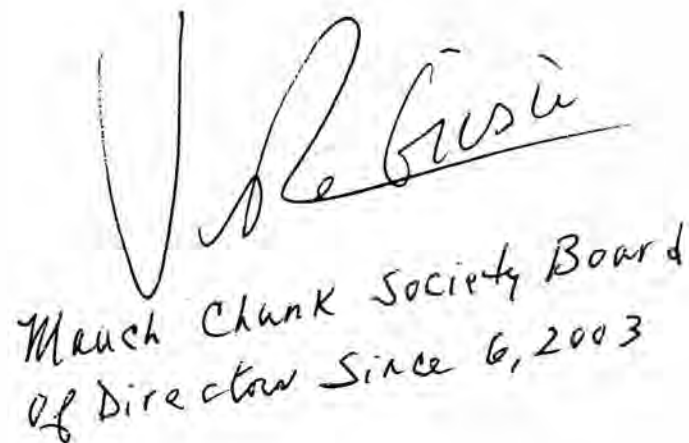 V. DeGiusti
Mauch Chunk Society Board
of Directors Since 6, 2003